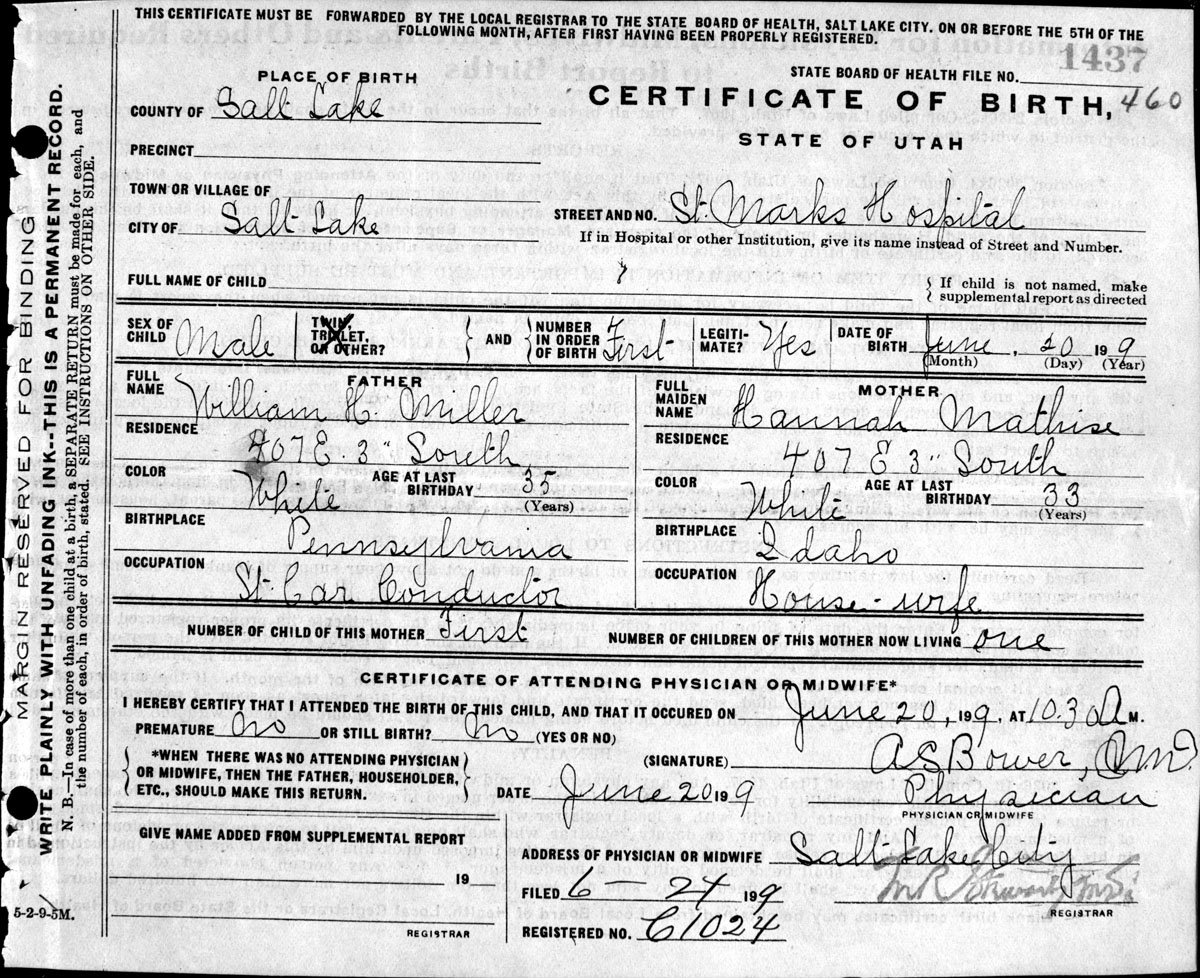 THIS CERTIFICATE MUST BE FORWARDED BY THE LOCAL REGISTRAR TO THE STATE BOARD OF HEALTH, SALT LAKE CITY, ON OR BEFORE THE 5TH OF THE
FOLLOWING MONTH, AFTER FIRST HAVING BEEN PROPERLY REGISTERED.
1437
PLACE OF BIRTH
STATE BOARD OF HEALTH FILE NO.
COUNTY OF Salt Lake
CERTIFICATE OF BIRTH, 460
STATE OF UTAH
PRECINCT
TOWN OR VILLAGE OF
CITY OF Salt Lake
STREET AND NO. St. Marks Hospital
If in Hospital or other Institution, give its name instead of Street and Number.
FULL NAME OF CHILD
If child is not named, make
supplemental report as directed
SEX OF CHILD Male
TWIN, TRIPLET, OR OTHER?
AND
NUMBER IN ORDER OF BIRTH First
LEGITIMATE? Yes
DATE OF BIRTH June, 20 1909
(Month) (Day) (Year)
FATHER
FULL NAME William H. Miller
RESIDENCE 407 E 3" South
COLOR White
AGE AT LAST BIRTHDAY 35
(Years)
BIRTHPLACE Pennsylvania
OCCUPATION St Car Conductor
MOTHER
FULL MAIDEN NAME Hannah Mathise
RESIDENCE 407 E 3" South
COLOR White
AGE AT LAST BIRTHDAY 33
(Years)
BIRTHPLACE Idaho
OCCUPATION House-wife
NUMBER OF CHILD OF THIS MOTHER First
NUMBER OF CHILDREN OF THIS MOTHER NOW LIVING one
CERTIFICATE OF ATTENDING PHYSICIAN OR MIDWIFE*
I HEREBY CERTIFY THAT I ATTENDED THE BIRTH OF THIS CHILD, AND THAT IT OCURED ON June 20, 1909, AT 10.30 A M.
PREMATURE No OR STILL BIRTH? No (YES OR NO)
*WHEN THERE WAS NO ATTENDING PHYSICIAN
OR MIDWIFE, THEN THE FATHER, HOUSEHOLDER,
ETC., SHOULD MAKE THIS RETURN.
(SIGNATURE) A S Bower,
DATE June 20 1909
Physician
PHYSICIAN OR MIDWIFE
GIVE NAME ADDED FROM SUPPLEMENTAL REPORT
19
REGISTRAR
ADDRESS OF PHYSICIAN OR MIDWIFE Salt Lake City
FILED 6 21 1909
REGISTRAR
REGISTERED NO. C1024
5-2-9-5M.
MARGIN RESERVED FOR BINDING
WRITE PLAINLY WITH UNFADING INK--THIS IS A PERMANENT RECORD.
N. B.—In case of more than one child at a birth, a SEPARATE RETURN must be made for each, and
the number of each, in order of birth, stated. SEE INSTRUCTIONS ON OTHER SIDE.